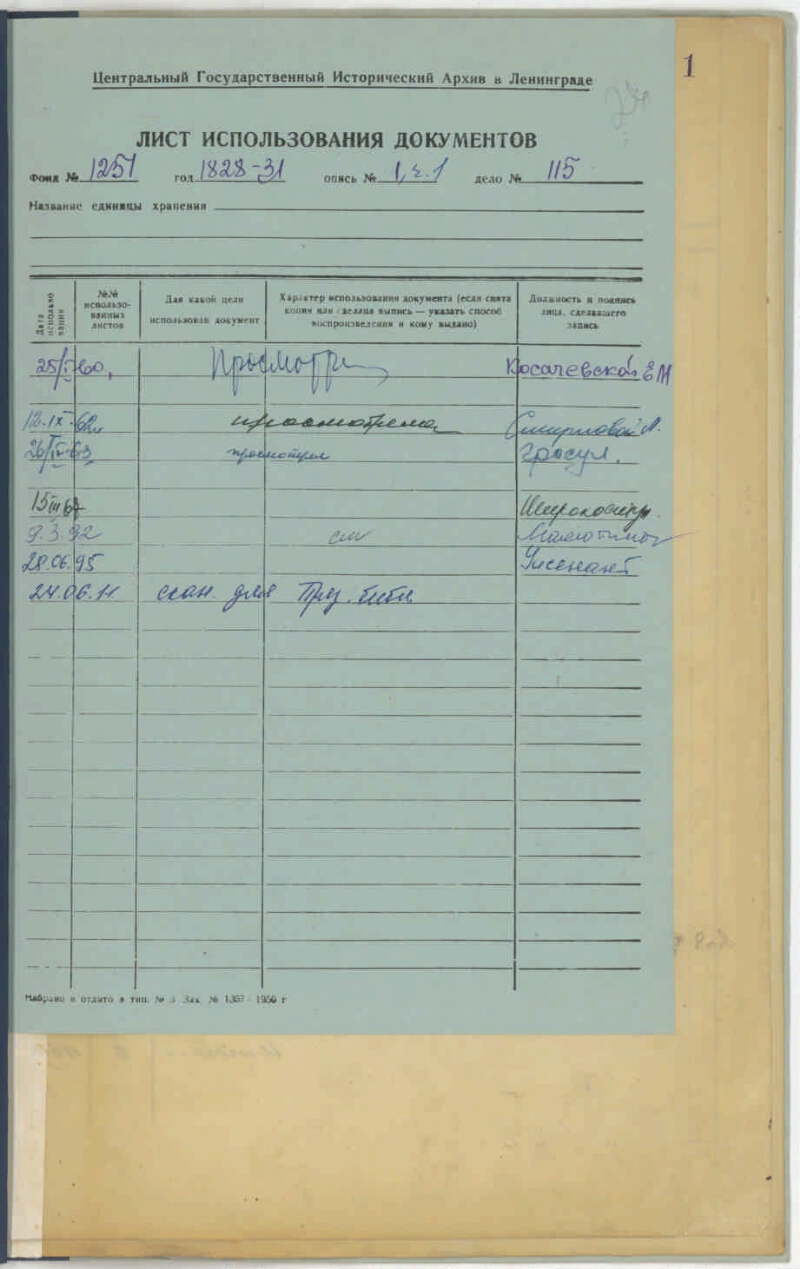 1
Центральный Государственный Исторический Архив в Ленинграде
ЛИСТ ИСПОЛЬЗОВАНИЯ ДОКУМЕНТОВ
Фонд № 1251 год 1828-31 опись № 1, ч.1 дело № 115
Название единицы хранения
Дата использования
№№ использо-
ванных
листов
Для какой цели
использован документ
Характер использования документа (если снята
копия или сделана выпись — указать способ
воспроизведения и кому выдано)
Должность и подпись
лица, сделавшего
запись
25/ 60, Косачевская Е М
12.IX-62 просмотрела Смирнова
26/IV-63 просмотрел Гросул.
15 III
9.3.92 см
28.06.95
24.06.11 скан. для През. библ.
Набрано и отлито в тип. № 3 Зак. № 1357 - 1950 г